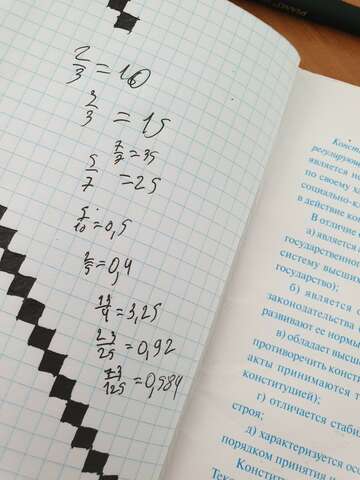 2/3 = 10
3/3 = 15
7/7 = 35
5/7 = 25
5/10 = 0,5
2/5 = 0,4
13/4 = 3,25
23/25 = 0,92
73/125 = 0,584
PIANO
Конст
регулирую
является не
по своему
социально-кл
в действие ко
В отличие
а) является
государственног
систему высших
государство);
б) является о
законодательства
развивают ее нормы
в) обладает высш
противоречить конст
акты принимаются т
конституцией);
г) отличается стаби
строя;
д) характеризуется осо
порядком принятия и
Констит